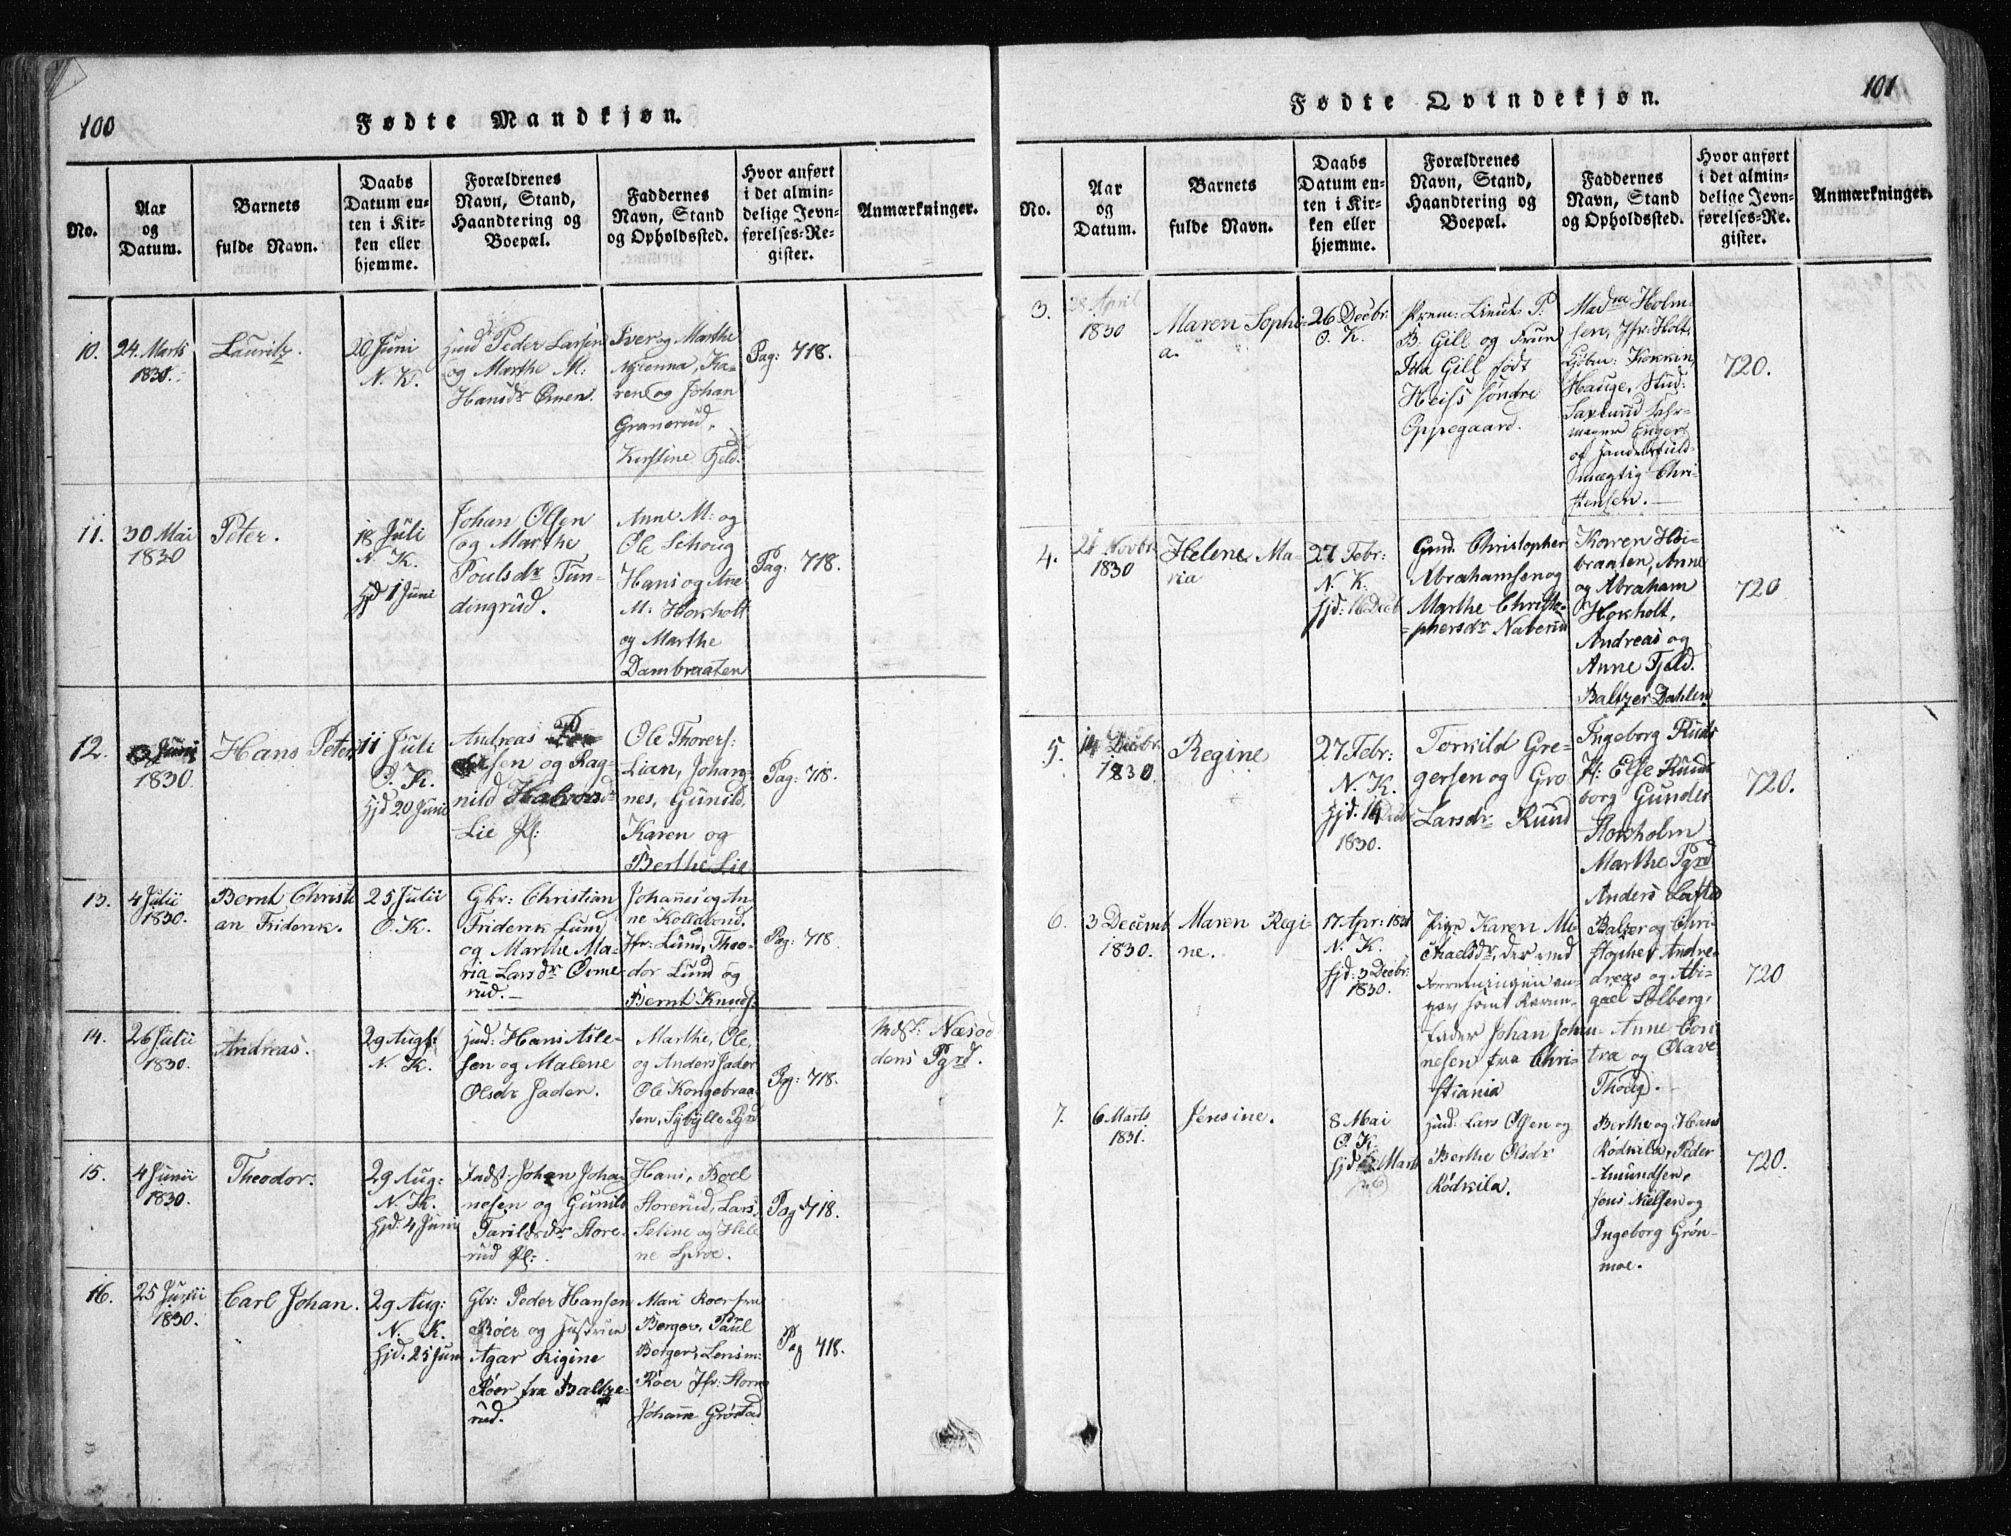 100
Fødte Mandkjøn.
No.
Aar
og
Datum.
Barnets
fulde Navn.
Daabs
Datum en-
ten i Kir-
ken eller
hjemme.
Forældrenes
Navn, Stand,
Haandtering og
Boepæl.
Faddernes
Navn, Stand
og Opholdssted.
Hvor anført
i det almin-
delige Jevn-
førelses-Re-
gister.
Anmærkninger.
10.
24. Marts
1830.
Lauritz.
20 Juni
N. K.
Huusd Peder Larsen
og Marthe M:
Hansdr
Iver og Marthe
Ka-
ren og Johan
Granerud,
Kirstine Fjeld.
Pag: 718.
11.
30 Mai
1830
Peter.
18 Juli
N. K.
Hjd 1 Juni
Johan Olsen
og Marthe
Poulsdr Tun-
dingrud.
Anne M: og
Ole Schoug
Hans og Ane
M: Hoxholt
og Marthe
Dambraaten
Pag: 718.
12.
Juni
1830
Hans Peter
11 Juli
O. K.
Hjd 20 Juni
Andreas
sen og Rag-
nild Halvorsdr
Lie Pl:
Ole Thorers:
Lian, Johan-
nes, Gunild,
Karen og
Berthe Lie
Pag: 718.
13.
4 Julii
1830.
Bernt Christi
an Friderik.
25 Julii
O. K.
Gkr: Christian
Friderik Lund
og Marthe Ma-
ria Larsdr Orme
rud.-
Johannes og An-
ne Kollerud,
Jfr: Lund, Theo-
dor Lund og
Bernt Knuds:
Pag: 718.
14.
26 Julii
1830.
Andreas.
29 Augst:
N. K.
Huusd: Hans Asle-
sen og Malene
Olsdr Jaden.
Marthe, Ole,
og Anders Jader
Ole Kongebraa-
ten, Sybylle Pgrd
Pag: 718.
Indst: Næsod
dens Pgrd.
15.
4 Junii
1830.
Theodor.
29 Aug:
N. K.
Hjd: 4 Juni
Indst: Johan Joha-
nesen og Gunild
Tarildsdr Store-
rud Pl:
Hans, Boel
Storerud, Lars,
Seline og Hele
ne
Pag 718.
16.
25 Junii
1830.
Carl Johan.
29 Aug:
N. K.
Hjd: 25 Juni
Gbr: Peder Hansen
Röer og Hustrue
Agar Rigine
Röer fra Baltze-
rud.
Mari Roer fra
Berger, Paul
Berger,
Röer Jfr: Storm
Johanne Gröstad
Pag 718.
101
Fødte Qvindekjøn.
No.
Aar
og
Datum.
Barnets
fulde Navn.
Daabs
Datum en-
ten i Kir-
ken eller
hjemme.
Forældrenes
Navn, Stand,
Haandtering og
Boepæl.
Faddernes
Navn, Stand
og Opholdssted.
Hvor anført
i det almin-
delige Jevn-
førelses-Re-
gister.
Anmærkninger.
3.
28 April
1830
Maren Sophi-
a.
26 Decbr:
O. K.
Prem: Lieut: P.
B. Gill og Frue
Ida Gill født
Heiss söndre
Oppegaard.
Madm Holm-
sen, Jfr: Holt,
Hauge, Stud:
Saxlund
of Handelsfuld-
mægtig Chri-
stensen.
720.
4.
Novbr
1830
Helene Ma-
ria
27 Febr:
N. K.
Hjd: 16 Decb
Gmd. Christopher
Abrahamsen og
Marthe Christo-
phersdr Naberud
Karen Hei-
braaten, Anne
og Abraham
Hoxholt,
Andreas og
Anne Fjeld.
Baltzer Dahlen
720
5.
14 Decbr:
1830.
Regine
27 Febr:
N. K.
Hjd: 14 Decb
1830.
Torkild Gre-
gersen og Gro
Larsdr Ruud
Ingeborg Ruds
Pl: Else Ruuds
borg Gunder
Stoxholm
Marthe Pgrd
Anders Lofted
720.
6.
3 Decemb
1830.
Maren Regi-
ne.
17 Apr: 1831
N. K.
Hjd: 3 Decbr:
1830.
Pige Karen Mi-
chaelsdr, der ved
Forretningen an-
gav som Barne-
fader Johan Johan-
nesen fra Chri-
stiania
Balzer og Chri-
stopher Andre-
dreas og Abi-
gael Solberg,
Anne Con-
tra og Olave
Thoug.
720
7.
6 Marts
1831.
Jensine.
8 Mai
O. K.
Hjd: 6 Marts
Huusd: Lars Olsen og
Berthe Olsdr
Rödkila.
Berthe og Hans
Rödkila, Peder
Amundsen,
Jens Nielsen og
Ingeborg Grön-
moe.
720.